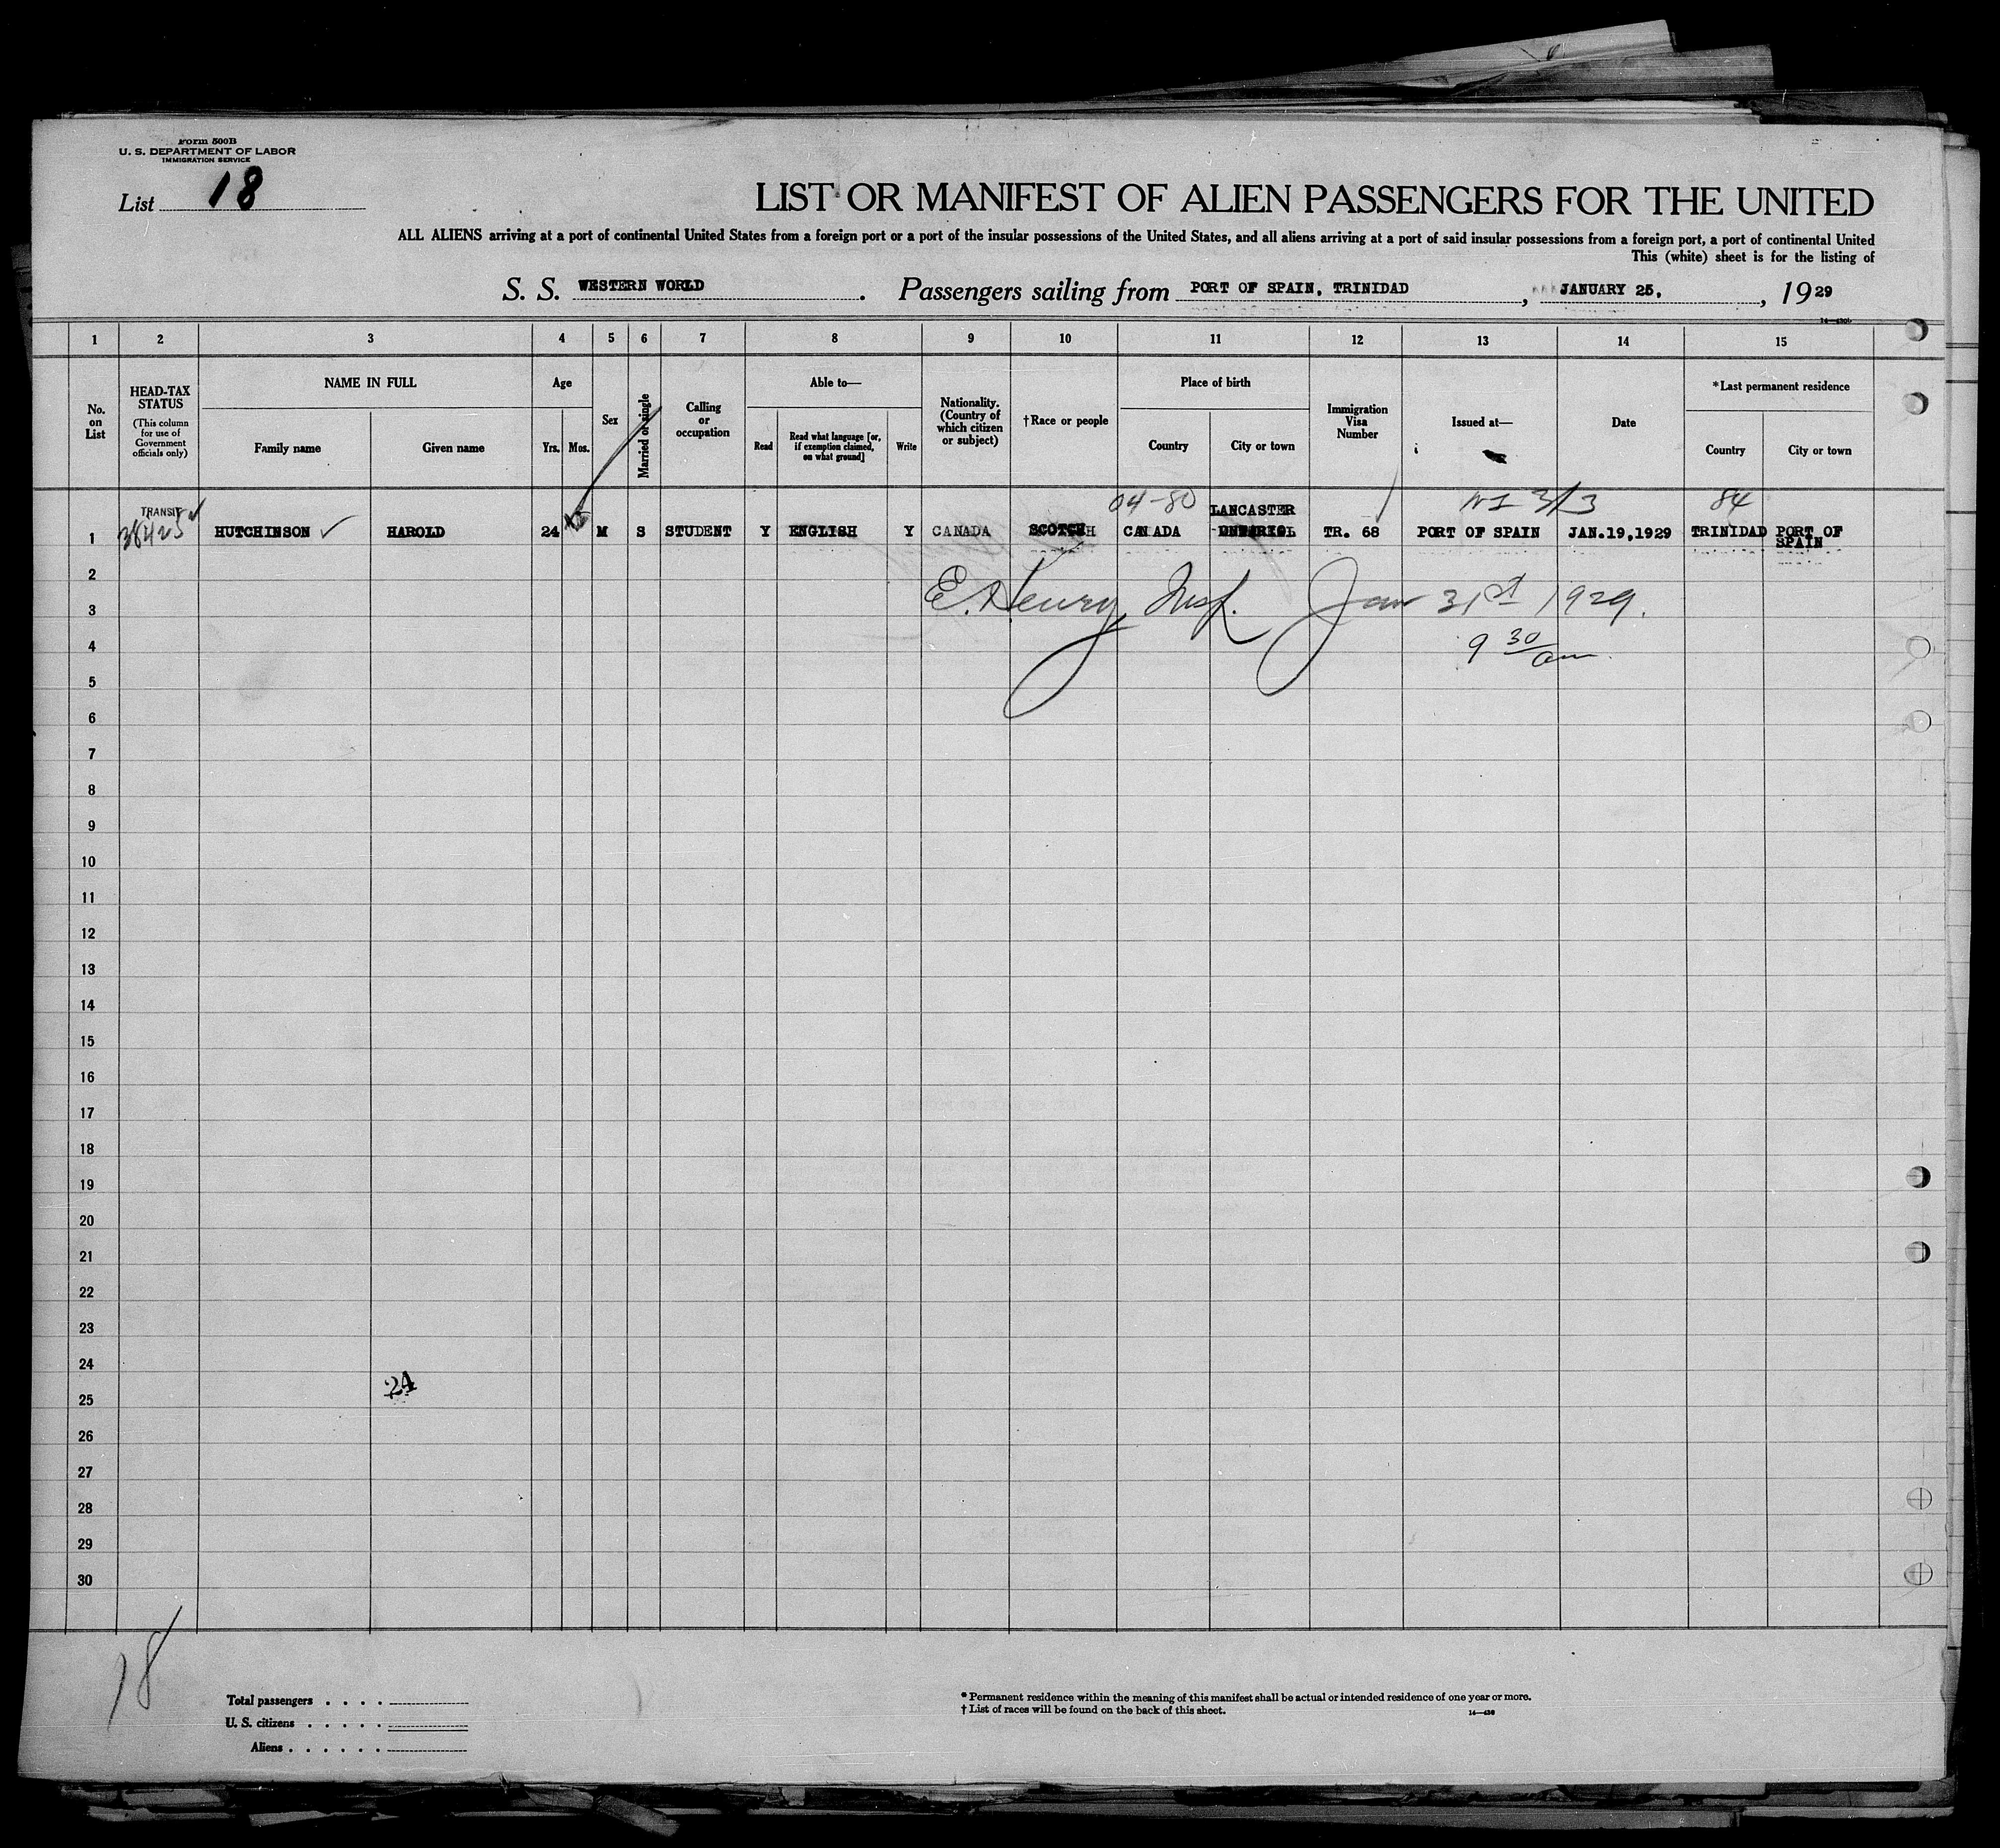 Form 500B
U. S. DEPARTMENT OF LABOR
IMMIGRATION SERVICE
List 18
LIST OR MANIFEST OF ALIEN PASSENGERS FOR THE UNITED
ALL ALIENS arriving at a port of continental United States from a foreign port or a port of the insular possessions of the United States, and all aliens arriving at a port of said insular possessions from a foreign port, a port of continental United
This (white) sheet is for the listing of
S. S. WESTERN WORLD. Passengers sailing from PORT OF SPAIN, TRINIDAD, JANUARY 25, , 1929
1 2 3 4 5 6 7 8 9 10 11 12 13 14 15
No. on List
HEAD-TAX STATUS
(This column for use of Government officials only)
NAME IN FULL
Family name Given name
Age
Yrs. Mos.
Sex
Married or single
Calling or occupation
Able to—
Read
Read what language [or, if exemption claimed, on what ground]
Write
Nationality. (Country of which citizen or subject)
†Race or people
Place of birth
Country City or town
Immigration Visa Number
Issued at—
Date
*Last permanent residence
Country City or town
04-80 84
TRANSIT LANCASTER
1 38425 HUTCHINSON HAROLD 24 M S STUDENT Y ENGLISH Y CANADA SCOTCH CANADA TR. 68 PORT OF SPAIN JAN.19,1929 TRINIDAD PORT OF SPAIN
2
E. Henry, Insp. Jan 31st 1929.
3
9 30 am
4
5
6
7
8
9
10
11
12
13
14
15
16
17
18
19
20
21
22
23
24
24
25
26
27
28
29
30
18
Total passengers . . . .
U. S. citizens . . . . .
Aliens . . . . . .
* Permanent residence within the meaning of this manifest shall be actual or intended residence of one year or more.
† List of races will be found on the back of this sheet.